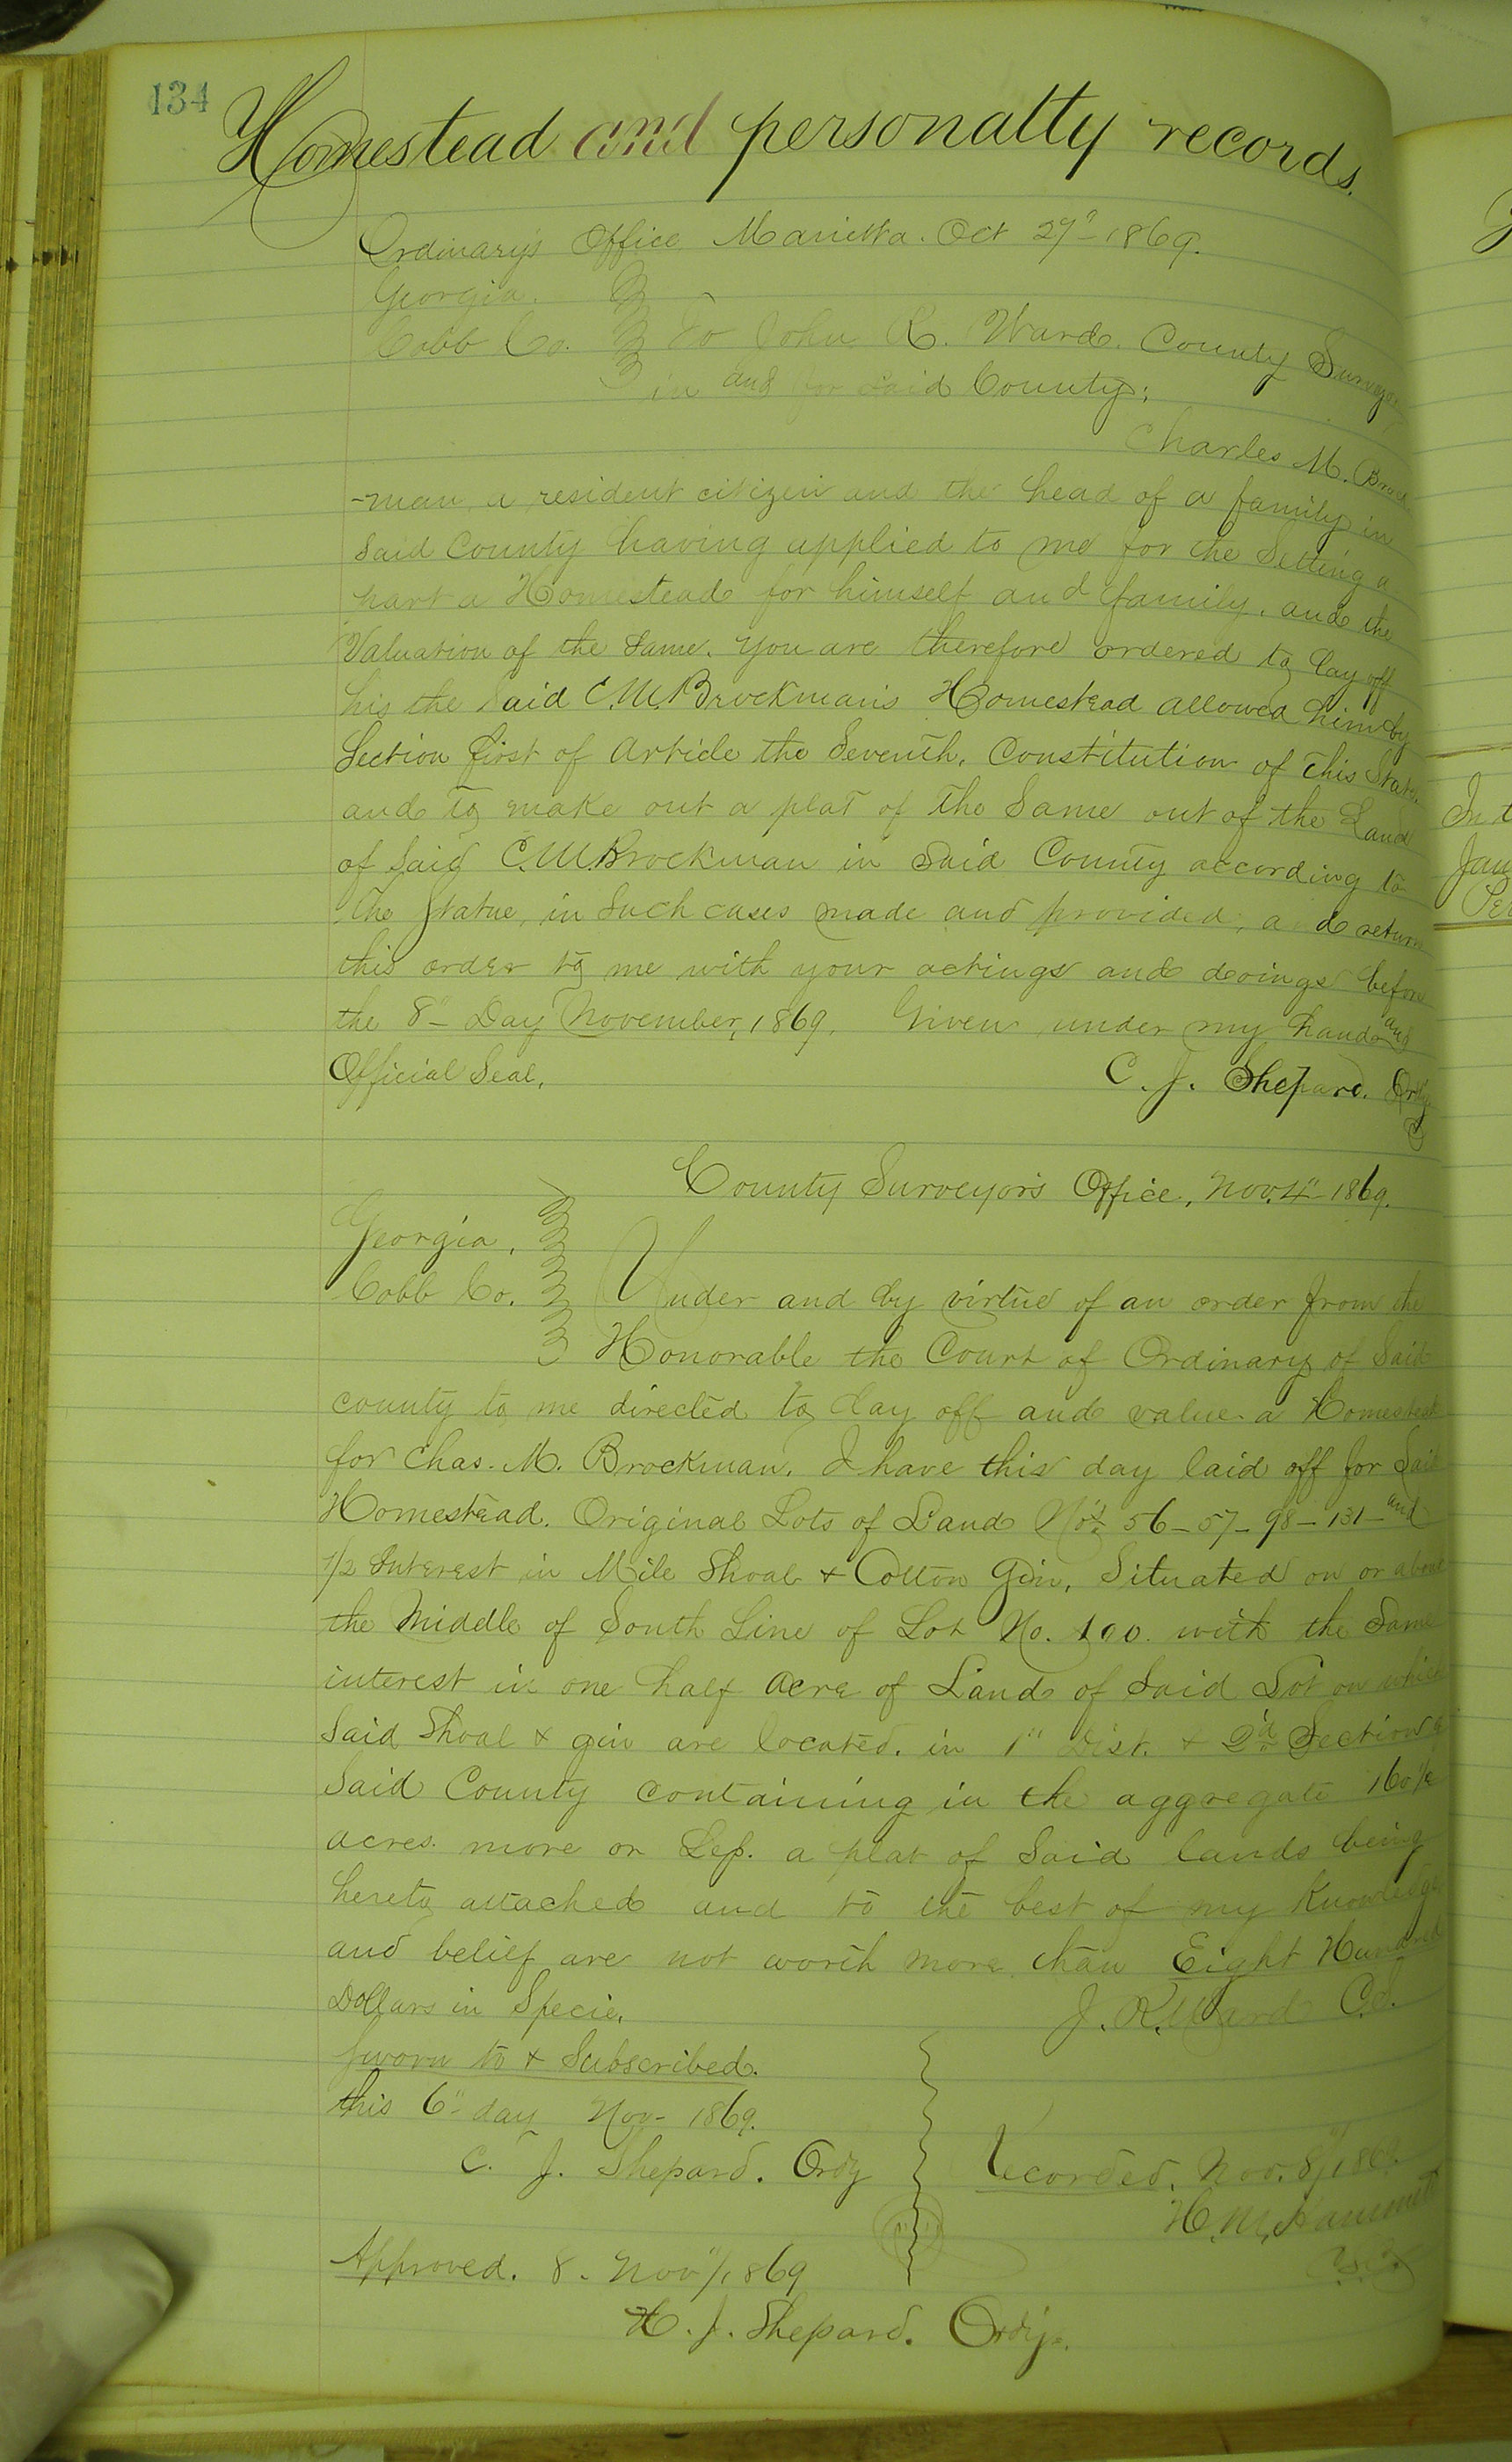 134
Homestead and personalty records.
Ordinary's Office Marietta. Oct 27" 1869.
Georgia.
Cobb Co. To John R. Ward. County Surveyor
in and for Said County;
Charles M. Brock
-man, a resident citizen and the head of a family in
Said County having applied to me for the Setting a
part a Homestead for himself and family, and the
Valuation of the Same. You are therefore ordered to lay off
his the Said C. M. Brockman's Homestead allowed him by
Section first of Article the Seventh, Constitution of this State.
and to make out a plat of the Same out of the Land
of Said C. M. Brockman in Said County according to
the Statue, in Such cases made and provided, a d return
this order to me with your actings and doings before
the 8" Day November, 1869. Given under my hand and
Official Seal,
C. J. Shepard. Ordy
County Surveyor's Office, Nov. 4" 1869.
Georgia,
Cobb Co. Under and by virtue of an order from the
Honorable the Court of Ordinary of Said
county to me directed to lay off and value a Homestead
for Chas. M. Brockman. I have this day laid off for Said
Homestead. Original Lots of Land No's. 56-57-98-131- and
1/2 Interest in Mile Shoal & Cotton Gin, Situated on or about
the Middle of South Line of Lot No. 100. with the Same
interest in one half acre of Land of Said Lot on which
Said Shoal & gin are located. in 1" Dist. & 2d Section
Said County containing in the aggregate
acres more or Less. a plat of Said lands being
hereto attached and to the best of my Knowledge
and belief are not worth more than Eight Hundred
Dollars in Specie.
J. R. Ward C.S.
Sworn to & Subscribed.
this 6" day Nov- 1869.
C. J. Shepard. Ordy
Recorded. Nov. 8",1869.
H. M. Hammett
Approved. 8. Nov"/1869
H. J. Shepard. Ordy.
In t